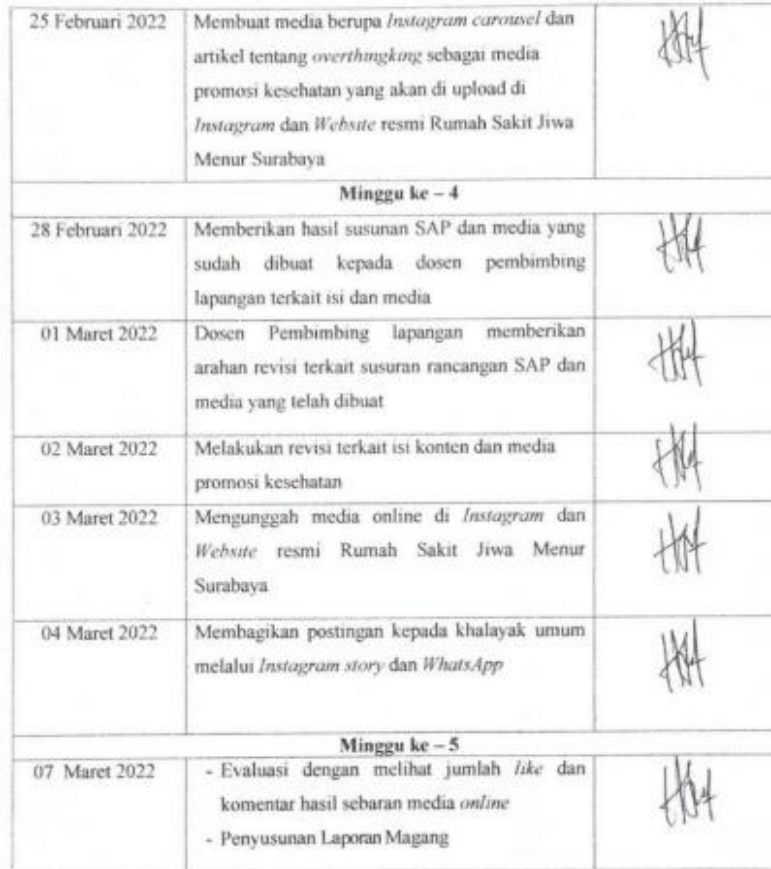 25 Februari 2022
Membuat media berupa Instagram carousel dan
artikel tentang overthingking sebagai media
promosi kesehatan yang akan di upload di
Instagram dan Website resmi Rumah Sakit Jiwa
Menur Surabaya
Minggu ke – 4
28 Februari 2022
Memberikan hasil susunan SAP dan media yang
sudah dibuat kepada dosen pembimbing
lapangan terkait isi dan media
01 Maret 2022
Dosen Pembimbing lapangan memberikan
arahan revisi terkait susuran rancangan SAP dan
media yang telah dibuat
02 Maret 2022
Melakukan revisi terkait isi konten dan media
promosi kesehatan
03 Maret 2022
Mengunggah media online di Instagram dan
Website resmi Rumah Sakit Jiwa Menur
Surabaya
04 Maret 2022
Membagikan postingan kepada khalayak umum
melalui Instagram story dan WhatsApp
Minggu ke – 5
07 Maret 2022
- Evaluasi dengan melihat jumlah like dan
komentar hasil sebaran media online
- Penyusunan Laporan Magang